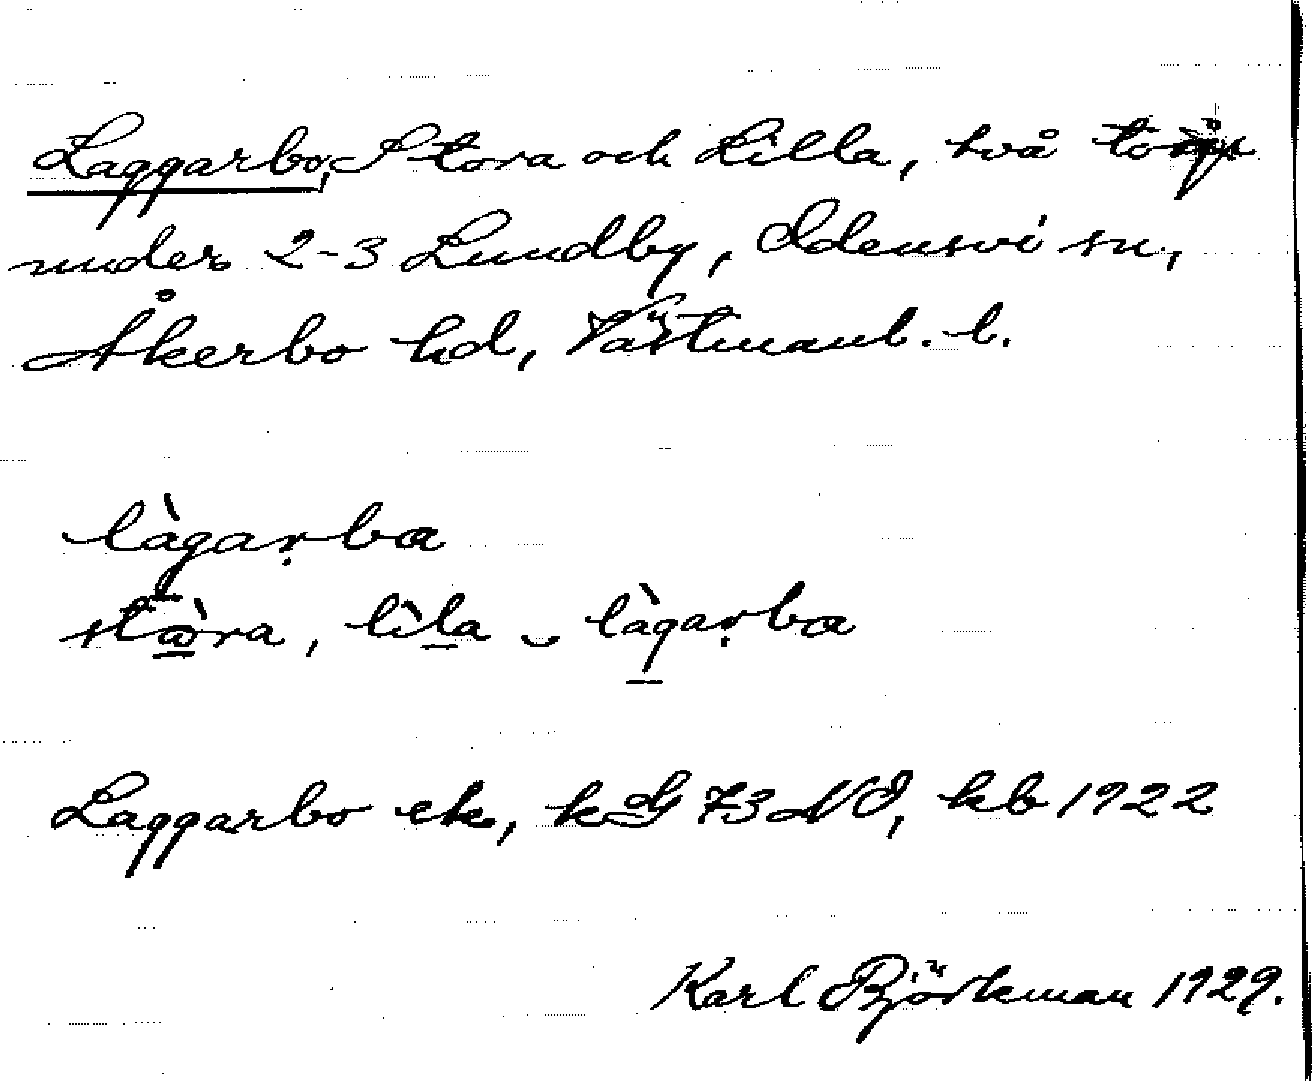 Laggarbo, Stora och Lilla, två torp
under 2-3 Lundby, Odensvi sn,
Åkerbo hd, Västmanl. l.
làgaṛbα
stὰra, lìla ‿ làgaṛbα
Laggarbo ek, kG 73 NO, kb 1922
Karl Björkman 1929.